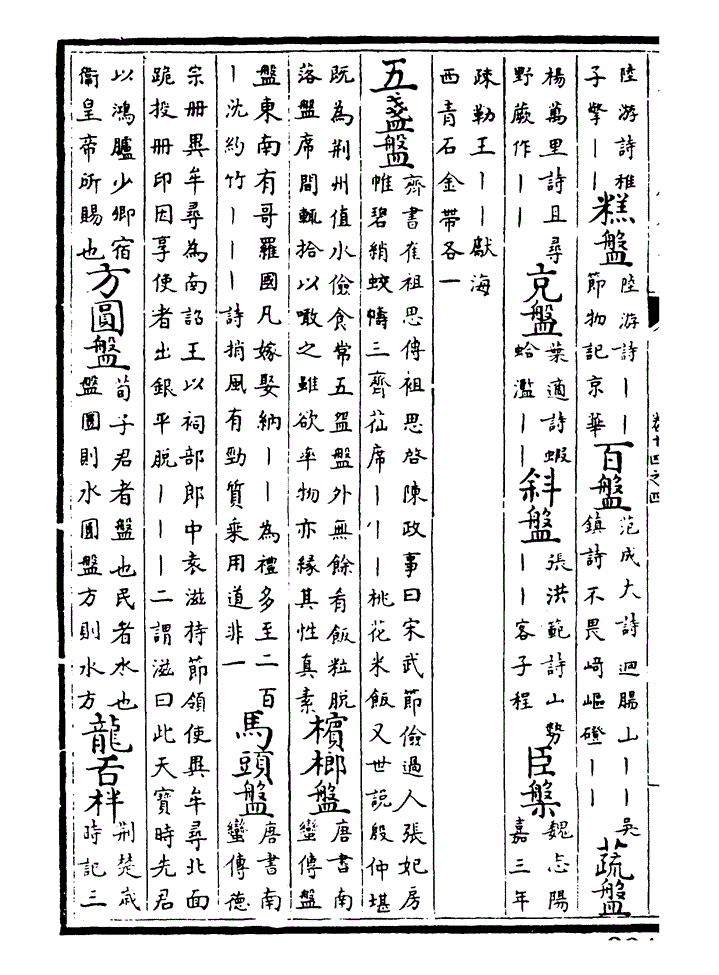 陸游詩稚子擎丨丨 糕盤 陸游詩丨丨節物記京華 百盤 范成大詩迴腸山丨丨吳鎮詩不畏﨑嶇磴丨丨 蔬盤
楊萬里詩且尋野蕨作丨丨 充盤 葉適詩蝦蛤濫丨丨 斜盤 張洪範詩山勢丨丨客子程 臣槃 魏志陽嘉三年
疎勒王丨丨獻海西青石金帶各一
五盞盤 齊書崔祖思傳祖思啓陳政事曰宋武節儉過人張妃房帷碧綃蛟幬三齊苮席丨丨丨桃花米飯又世說殷仲堪
既為荆州值水儉食常五盌盤外無餘肴飯粒脫落盤席間輒拾以噉之雖欲率物亦緣其性真素 檳榔盤 唐書南蠻傳盤
盤東南有哥羅國凡嫁娶納丨丨為禮多至二百丨沈約竹丨丨丨詩捎風有勁質乗用道非一 馬頭盤 唐書南蠻傳德
宗冊異牟尋為南詔王以祠部郎中袁滋持節領使異牟尋北面跪投冊印因享使者出銀平脫丨丨丨二謂滋曰此天寶時先君
以鴻臚少卿宿衞皇帝所賜也 方圓盤 荀子君者盤也民者水也盤圓則水圓盤方則水方 龍舌柈 荆楚歲時記三
卷十四之四